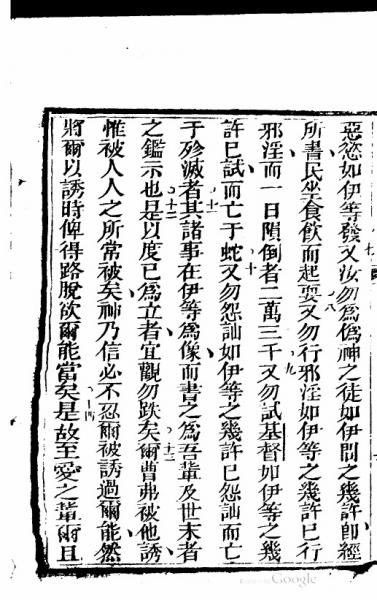 惡慾如伊等發又汝勿爲僞神之徒如伊間之幾許卽經
所書民坐食飲而起耍又勿行邪淫如伊等之幾許已行
邪淫而一日隕倒者二萬三千又勿試基督如伊等之幾
許已試而亡于蛇又勿怨訕如伊等之幾許已怨訕而亡
于殄滅者其諸事在伊等爲像而書之爲吾輩及世末者
之鑑示也是以度已爲立者宜觀勿跌矣爾曹弗被他誘
惟被人人之所常被矣神乃信必不忍爾被誘過爾能然
將爾以誘時俾得路脫欲爾能當矣是故至愛之輩爾且
七
八
九
十
十一
十二
十三
十四
Google